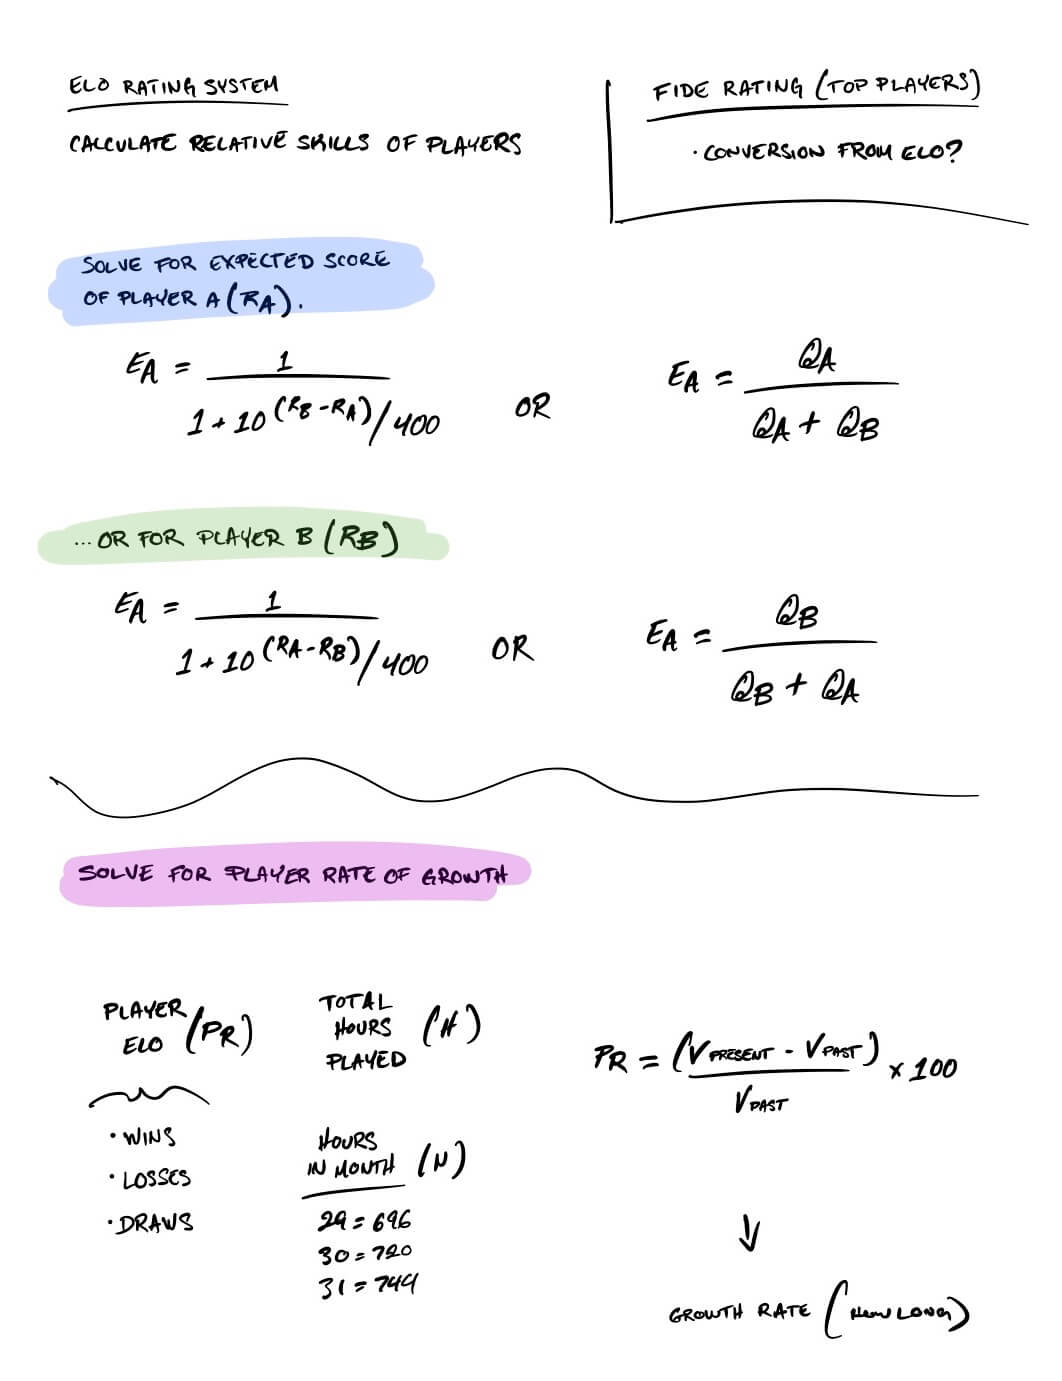 ELO RATING SYSTEM
CALCULATE RELATIVE SKILLS OF PLAYERS
FIDE RATING (TOP PLAYERS)
· CONVERSION FROM ELO?
SOLVE FOR EXPECTED SCORE
OF PLAYER A (RA).
EA = 1 / 1 + 10 (RB - RA) / 400
OR
EA = QA / QA + QB
... OR FOR PLAYER B (RB)
EA = 1 / 1 + 10 (RA - RB) / 400
OR
EA = QB / QB + QA
SOLVE FOR PLAYER RATE OF GROWTH
PLAYER
ELO (PR)
· WINS
· LOSSES
· DRAWS
TOTAL
HOURS (H)
PLAYED
HOURS
IN MONTH (N)
29 = 696
30 = 720
31 = 744
PR = (V PRESENT - V PAST) / V PAST × 100
GROWTH RATE (HOW LONG)